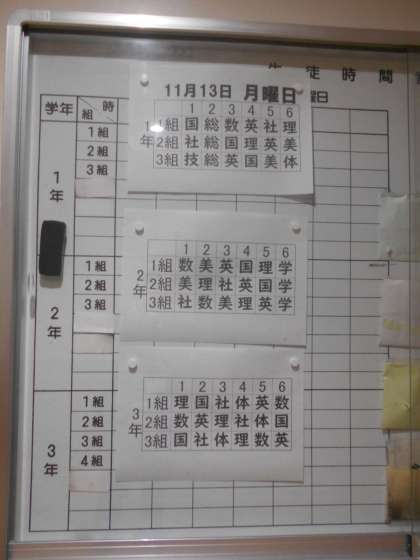 生徒時間
11月13日 月曜日 曜日
学年 組 時
1 2 3 4 5 6
1年
1組 国 総 数 英 社 理
2組 社 総 国 理 英 美
3組 技 総 英 国 美 体
1年
1組
2組
3組
1 2 3 4 5 6
2年
1組 数 美 英 国 理 学
2組 美 理 社 英 国 学
3組 社 数 美 理 英 学
2年
1組
2組
3組
1 2 3 4 5 6
3年
1組 理 国 社 体 英 数
2組 数 英 理 社 体 国
3組 国 社 体 理 数 英
3年
1組
2組
3組
4組